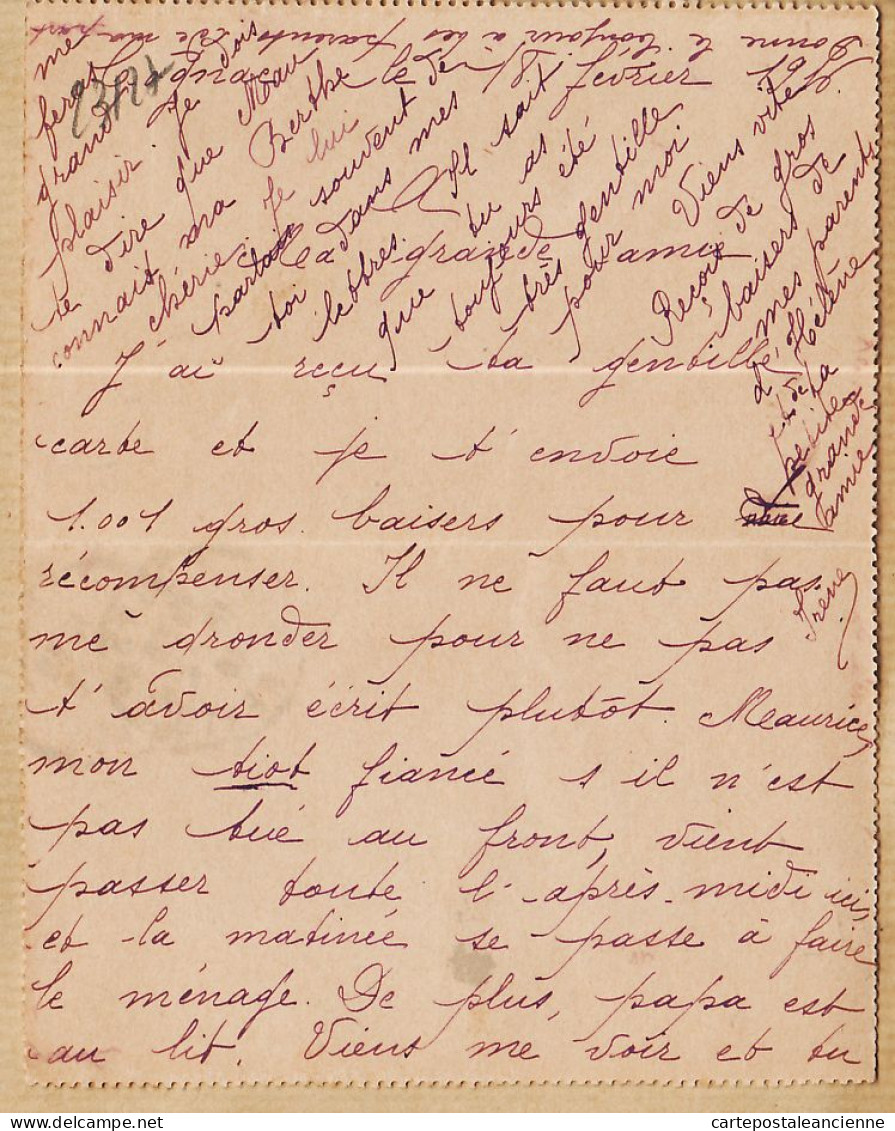 le 18 février 19
Ma grande amie
J'ai reçu ta gentille
carte et je t'envoie
1.001 gros baisers pour
récompenser. Il ne faut pas
me gronder pour ne pas
t'avoir écrit plutôt. Meaurice,
mon tiot fiancé s'il n'est
pas tué au front, vient
passer toute l'après-midi ici,
et la matinée se passe à faire
le ménage. De plus, papa est
au lit. Viens me voir et tu
me
feras
grand
plaisir. Je dois
te dire que Mau
connait ma Berthe
chérie. Je lui
parlais souvent de
toi dans mes
lettres. Il sait
que tu as
toujours été
très gentille
pour moi
Viens vite
Reçois de gros
baisers de
mes parents
d'Hélène
et de ta
petite
grande
amie
Irène
Donne le bonjour à tes parents de ma part
cartepostaleancienne.com